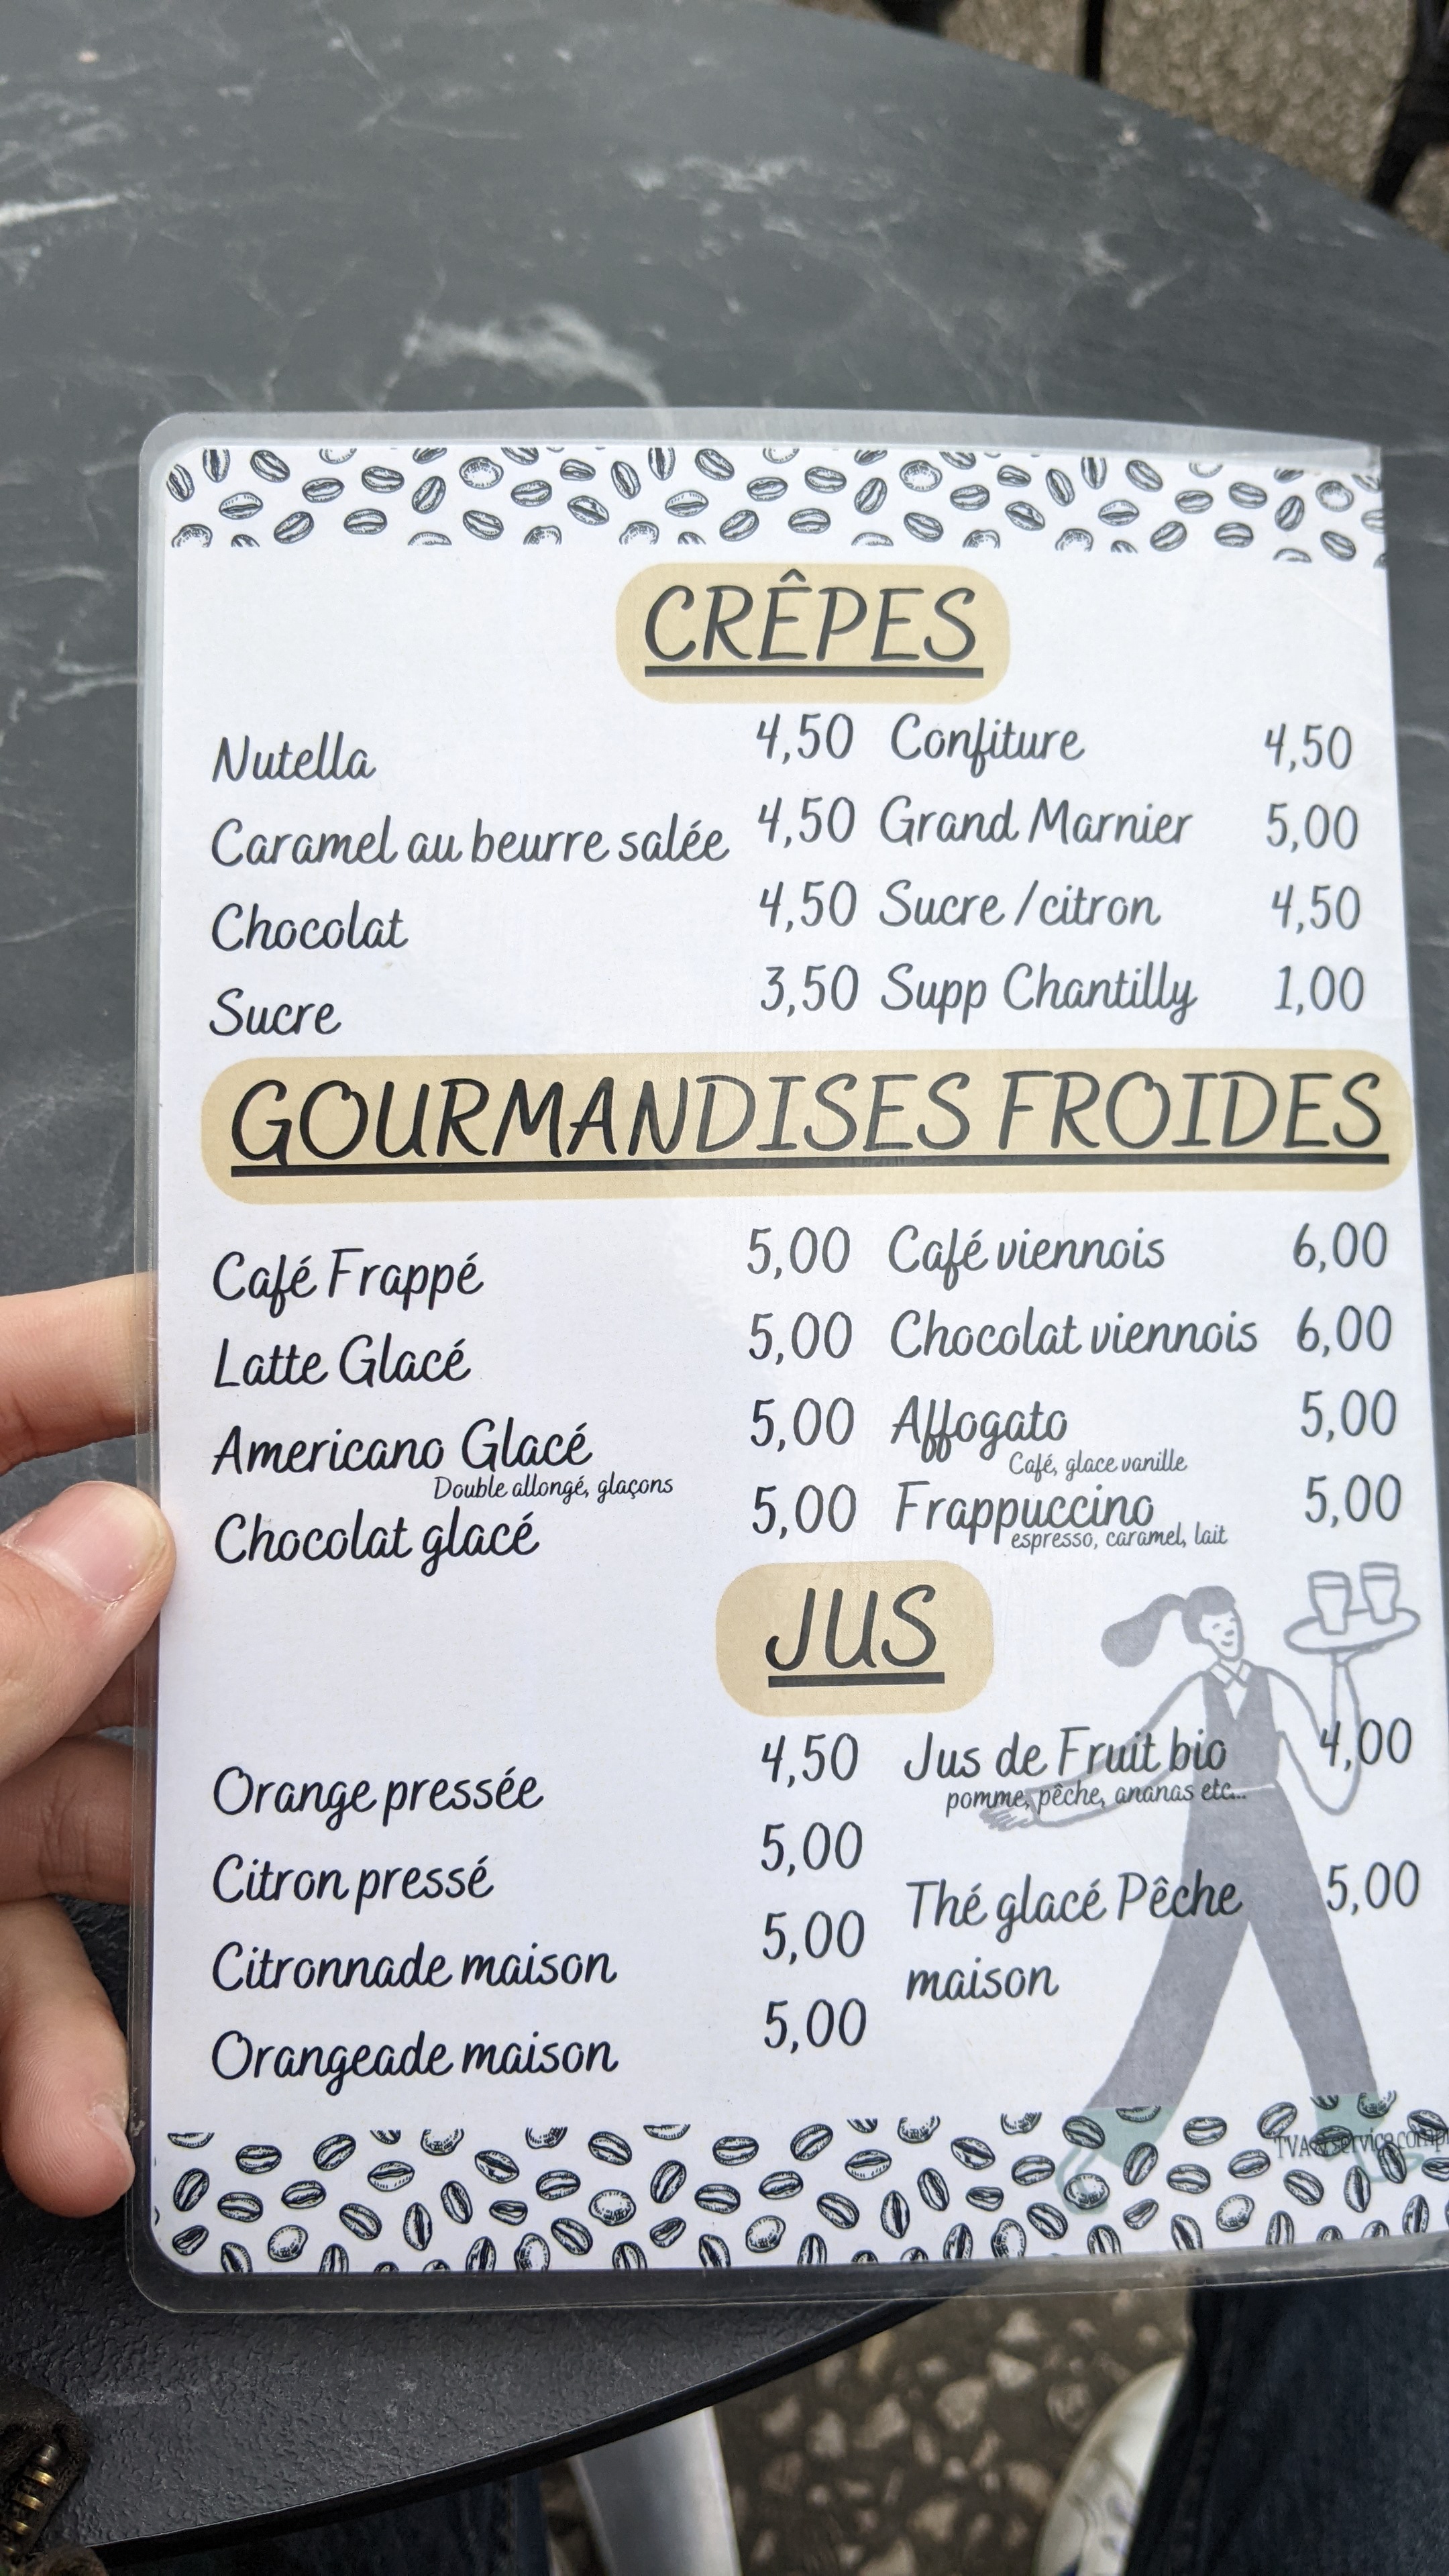 CRÊPES
Nutella 4,50
Caramel au beurre salée 4,50
Chocolat 4,50
Sucre 3,50
Confiture 4,50
Grand Marnier 5,00
Sucre /citron 4,50
Supp Chantilly 1,00
GOURMANDISES FROIDES
Café Frappé 5,00
Latte Glacé 5,00
Americano Glacé 5,00
Double allongé, glaçons
Chocolat glacé 5,00
Café viennois 6,00
Chocolat viennois 6,00
Affogato 5,00
Café, glace vanille
Frappuccino 5,00
espresso, caramel, lait
JUS
Orange pressée 4,50
Citron pressé 5,00
Citronnade maison 5,00
Orangeade maison 5,00
Jus de Fruit bio 4,00
pomme, pêche, ananas etc...
Thé glacé Pêche 5,00
maison
TVA service